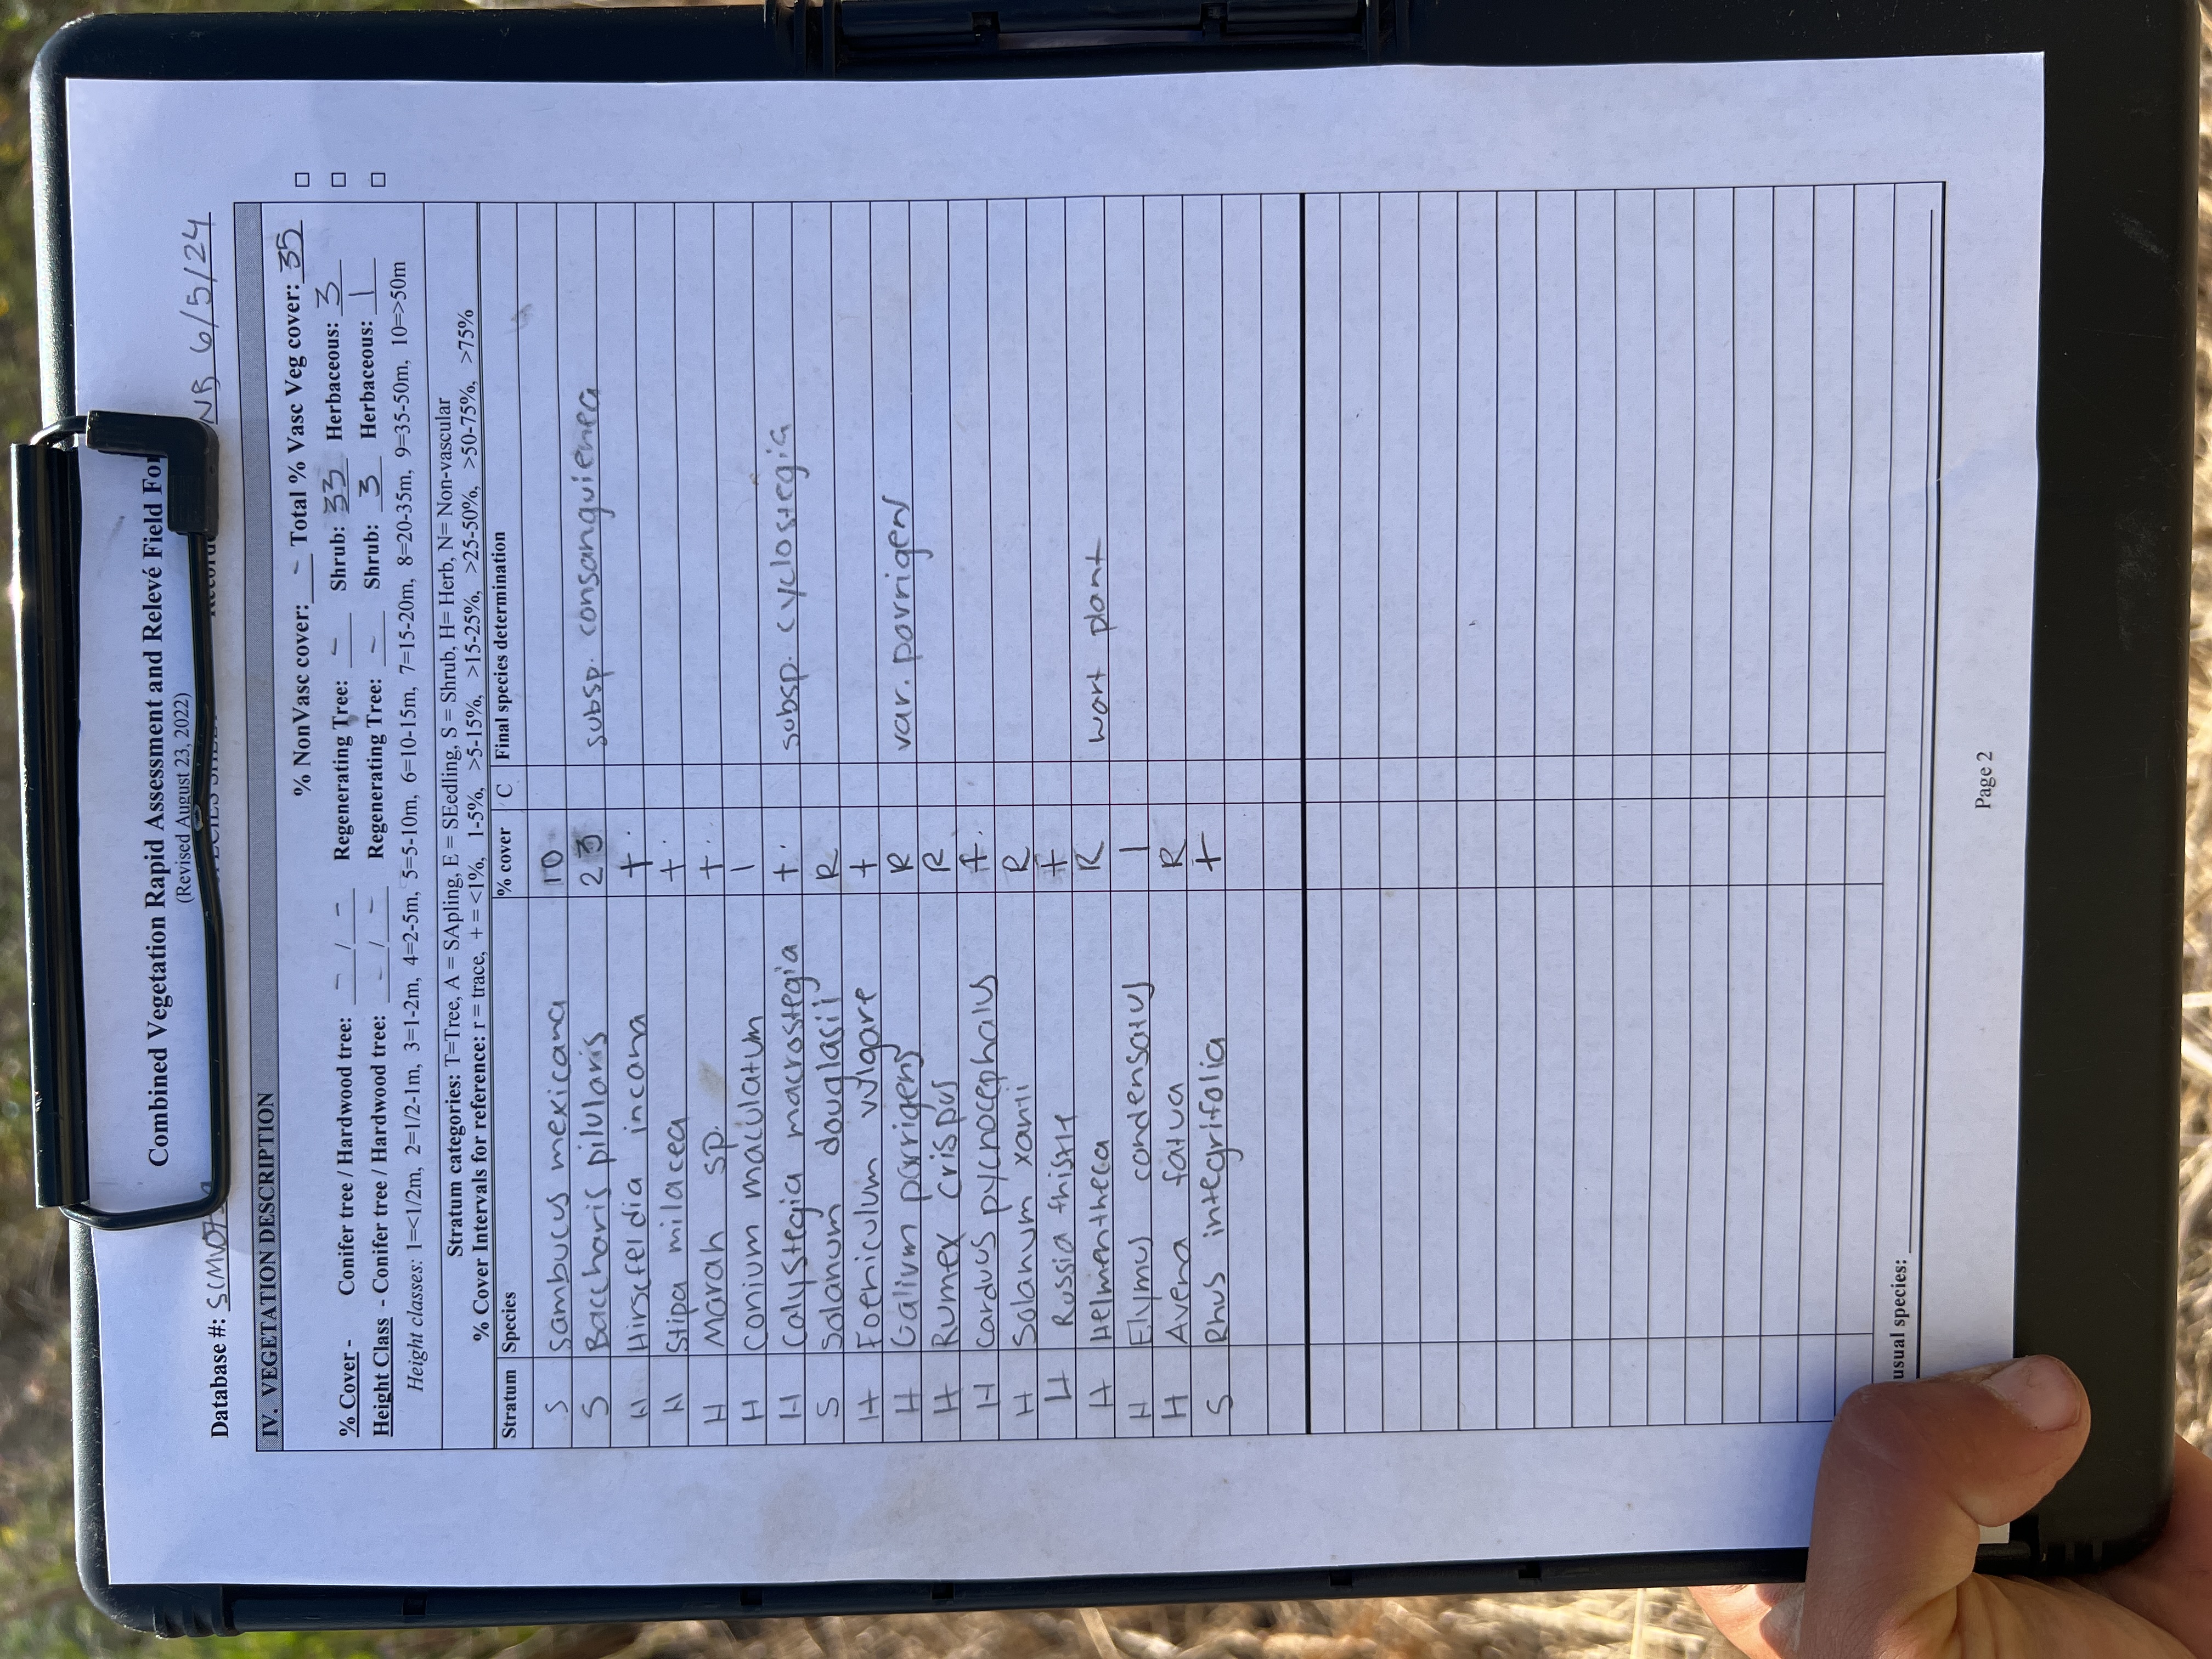 Combined Vegetation Rapid Assessment and Relevé Field For
(Revised August 23, 2022)
Database #: NB 6/5/24
IV. VEGETATION DESCRIPTION
% NonVasc cover: - Total % Vasc Veg cover: 35 □
% Cover - Conifer tree / Hardwood tree: - / - Regenerating Tree: - Shrub: 33 Herbaceous: 3 □
Height Class - Conifer tree / Hardwood tree: - / - Regenerating Tree: - Shrub: 3 Herbaceous: 1 □
Height classes: 1=<1/2m, 2=1/2-1m, 3=1-2m, 4=2-5m, 5=5-10m, 6=10-15m, 7=15-20m, 8=20-35m, 9=35-50m, 10=>50m
Stratum categories: T=Tree, A = SApling, E = SEedling, S = Shrub, H= Herb, N= Non-vascular
% Cover Intervals for reference: r = trace, + = <1%, 1-5%, >5-15%, >15-25%, >25-50%, >50-75%, >75%
Stratum Species % cover C Final species determination
S Sambucus mexicana 10
S Baccharis pilularis 23 subsp. consanguienea
H Hirscfeldia incana +.
H Stipa milacea +.
H Marah sp. +.
H Conium maculatum 1
H Calystegia macrostegia +. subsp. cyclostegia
S Solanum douglasii R
H Foeniculum vulgare +
H Galium porrigens R var. porrigens
H Rumex crispus R
H Cardus pycnocephalus +.
H Solanum xantii R
H Russia thistle +
H Helmentheca R wart plant
H Elymus condensatus 1
H Avena fatua R
S Rhus integrifolia +
usual species:
Page 2